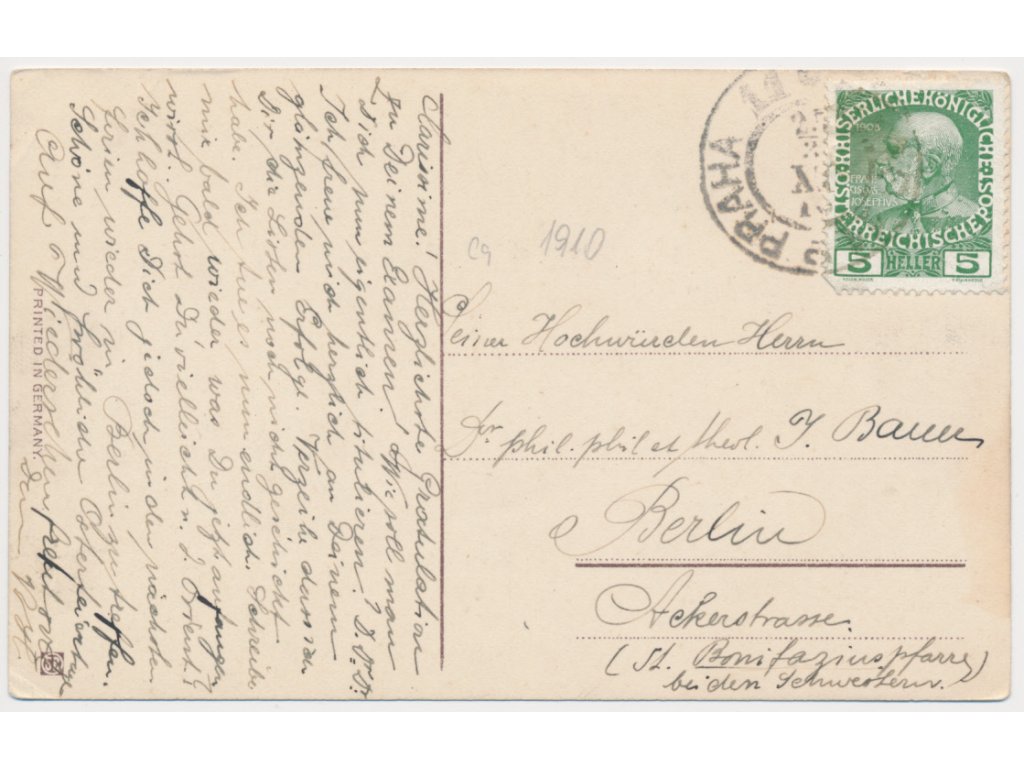 Clarissime! Herzlichste Gratulation
zu Deinem Examen! Wie soll man
Dich nun eigentlich titulieren? D. Dr. Dr.
Ich freue mich herzlich an Deinem
glänzenden Erfolge. Verzeihe dass ich
Dir die Listen noch nicht geschickt
habe. Ich tue es nun endlich. Schreibe
mir bald wieder was Du jetzt anfangen
wirst. Gehst Du vielleicht n. d. Orient?
Ich hoffe Dich jedoch in den nächsten
Ferien wieder in Berlin zu treffen.
Schöne und fröhliche Osterfeiertage
Auf Wiedersehen
Dein
PRINTED IN GERMANY
cq 1910
PRAHA
KAISERLICHE KÖNIGLICHE
ÖSTERREICHISCHE POST
1908
FRAN
CISCVS
JOSEPHVS
5 HELLER 5
Seiner Hochwürden Herrn
Dr phil. phil et theol. J. Bauer
Berlin
Ackerstrasse.
(St. Bonifaziuspfarre)
bei den Schwestern.